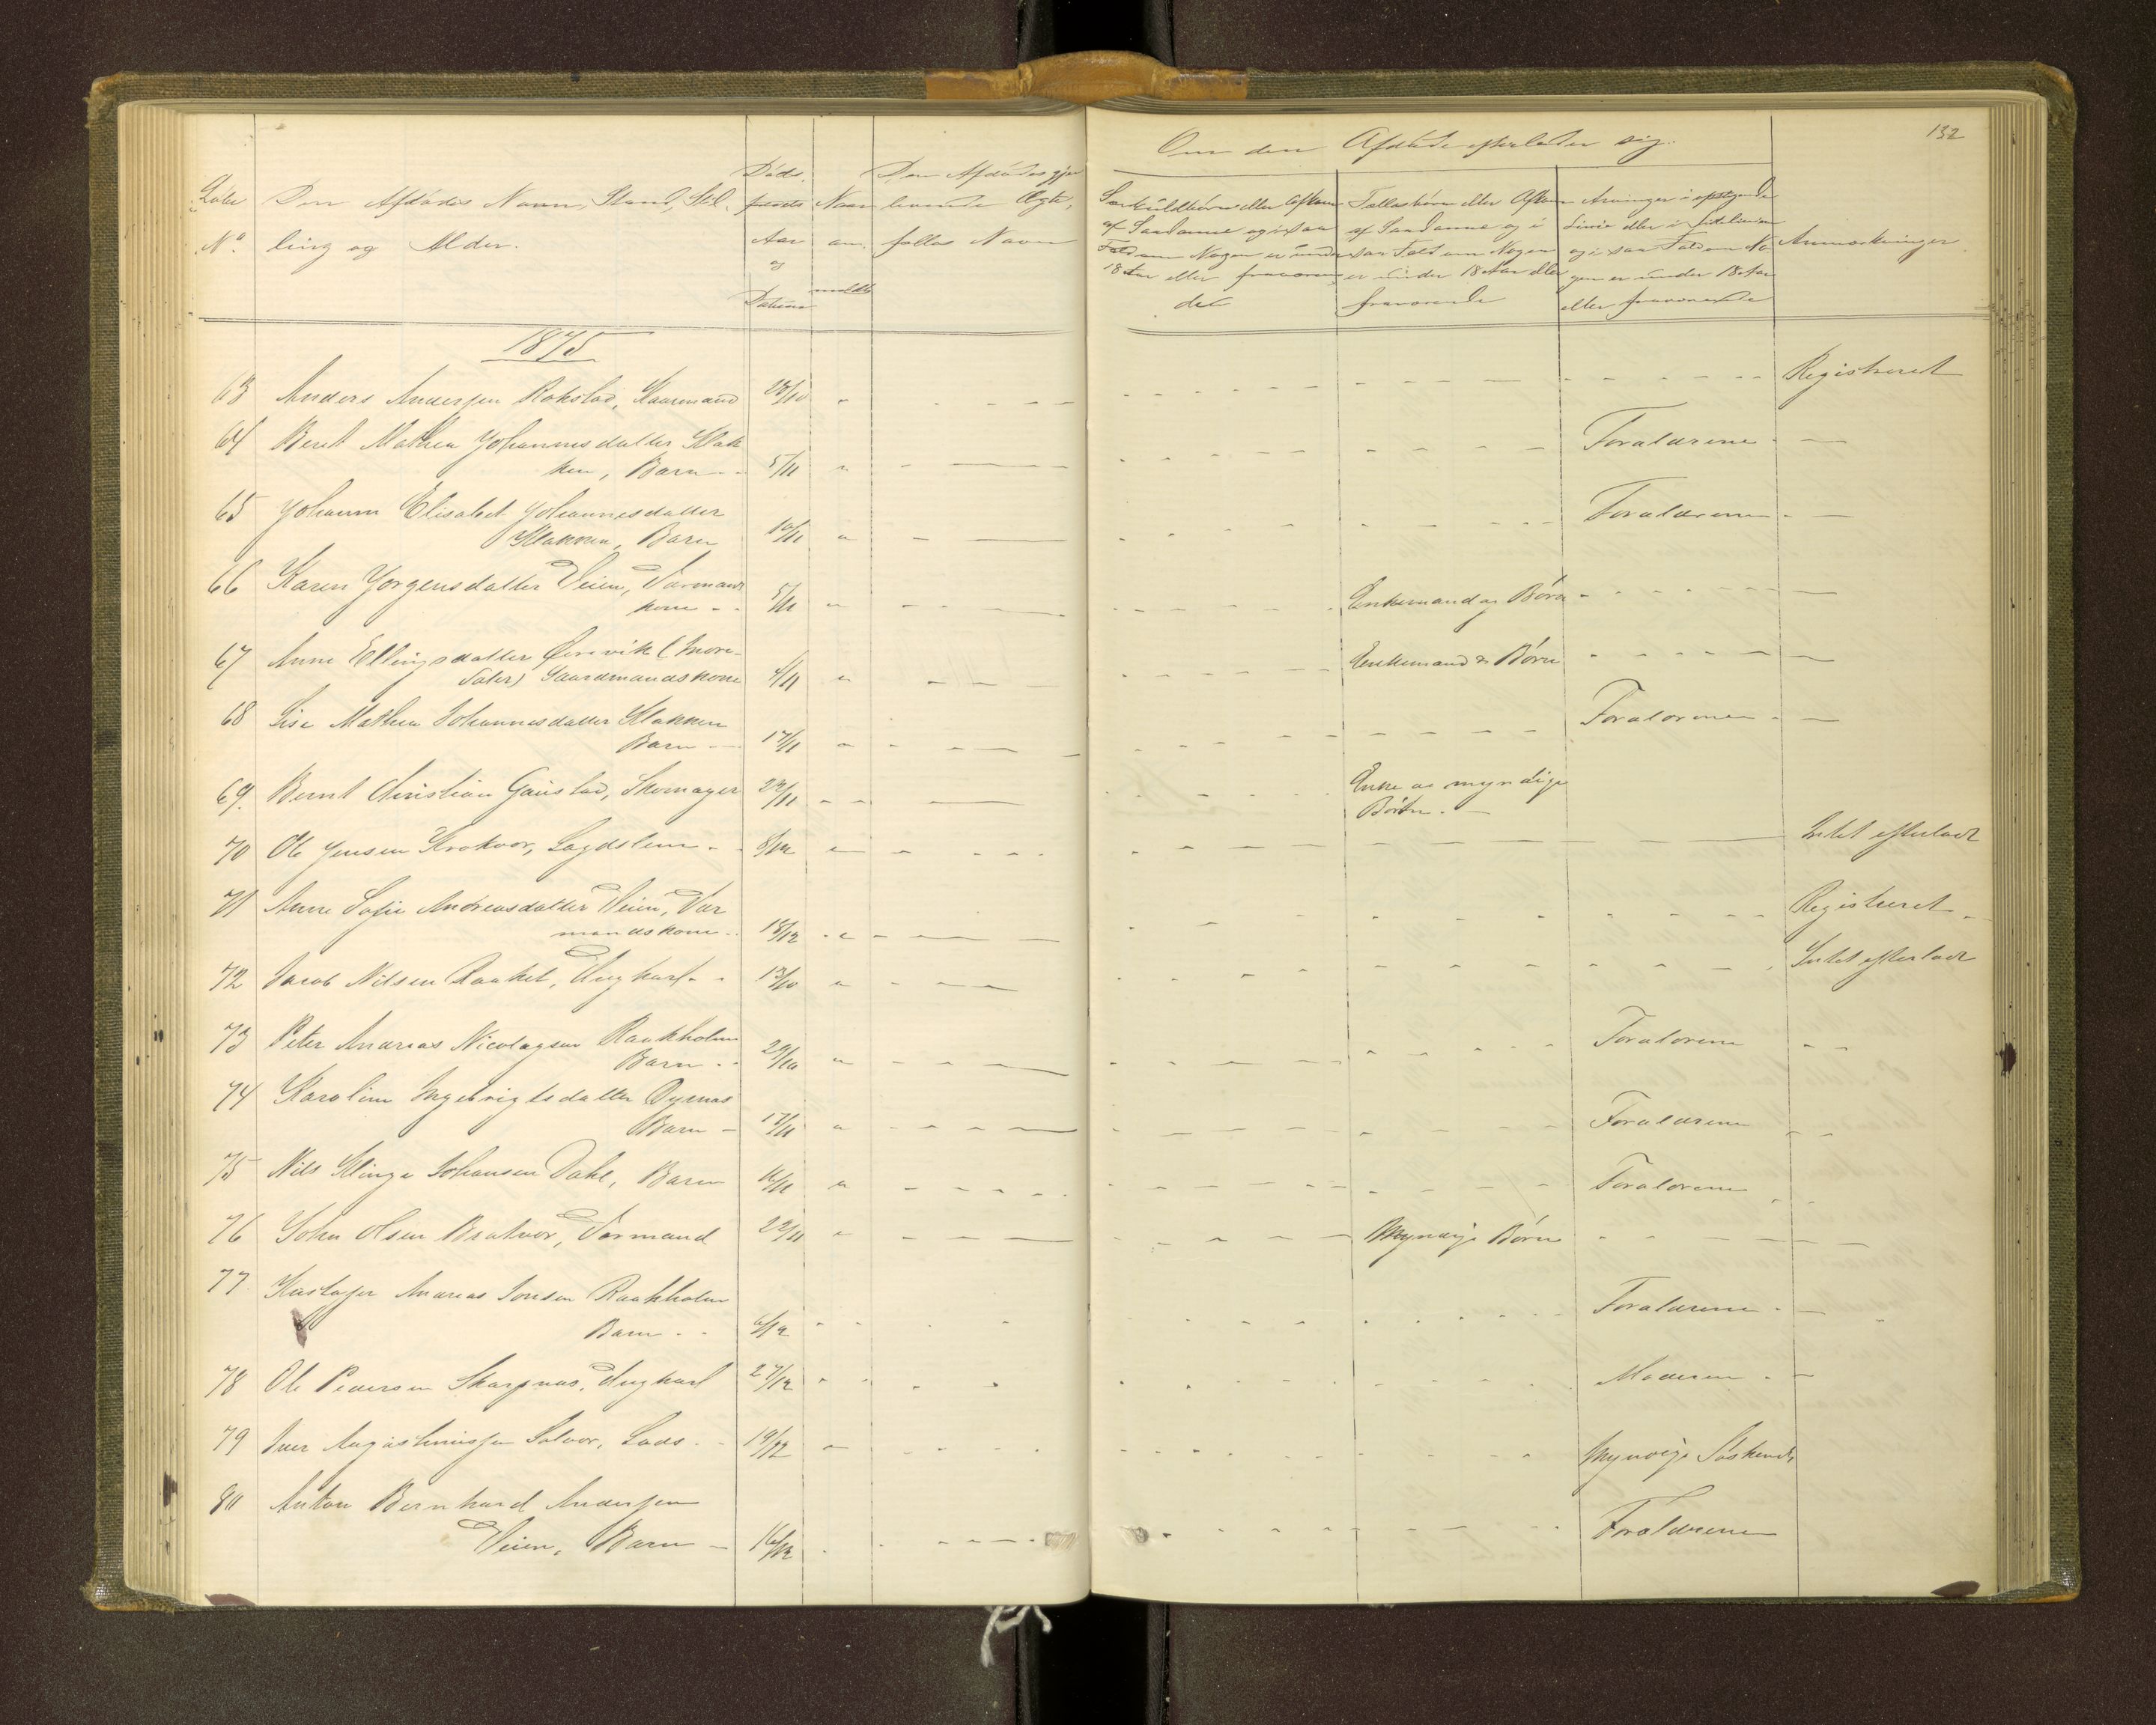 132
Om den Afdøde efterlader sig.
Løbe No. Den Afdødes Navn, Stand, Stilling og Alder.
Dødsfaldets Aar og Datum
Naar anmeldt
Den Afdødes gjenlevende Ægtefælles Navn
Særkuldbørn eller Afkom af Saadanne og i saa Fald om Nogen er under 18 Aar eller fraværende
Fællesbørn eller Afkom af Saadanne og i saa Fald om Nogen er under 18 Aar eller fraværende
Arvinger i opstigende Linie eller i Sidelinien og i saa Fald om Nogen er under 18 Aar eller fraværende
Anmærkninger
1875
63 Anders Andersen Rokstad, Kaarmand 28/10 Registreret
64 Beret Mathea Johannesdatter Klakken, Barn 5/11 Forældrene
65 Johanna Elisabet Johannesdatter
Klakken, Barn 10/11 Forældrene
66 Karen Jørgensdatter Veien, Formands
kone 5/11 Enkemand og Børn
67 Anne Ellingsdatter
Gaardmandskone 4/11 Enkemand & Børn
68 Lise Mathea Johannesdatter Klakken
Barn 17/11 Forældrene
69. Bernt Christian Gaustad, Skomager 22/11 Enke og myndige
Børn.
70 Ole Jensen Krokvor, Lægdslem 8/12 Intet efterladt
71 Anne Sofie Andreasdatter Veien, For
mandskone 18/12 Registreret
72 Jacob Nilsen Raaket, Ungkarl 13/10 Intet efterladt
73 Peter Andreas Nicolaysen Raakholm
Barn 29/10 Forældrene
74 Karoline Ingebrigtsdatter Dyrnas
Barn 17/11 Forældrene
75 Nils Klinge Johansen Dahl, Barn 16/11 Forældrene
76 John Olsen Bratvor, Formand 22/11 Myndige Børn
77 Kristofer Andreas Jonsen Raakholm
Barn 6/12 Forældrene
78 Ole Pedersen Skarpnas, Ungkarl 27/12 Moderen
79 Iver Solvor, Lods 19/12 Myndige Søskende
80 Anton Bernhard Andersen
Veien, Barn 16/12 Forældrene